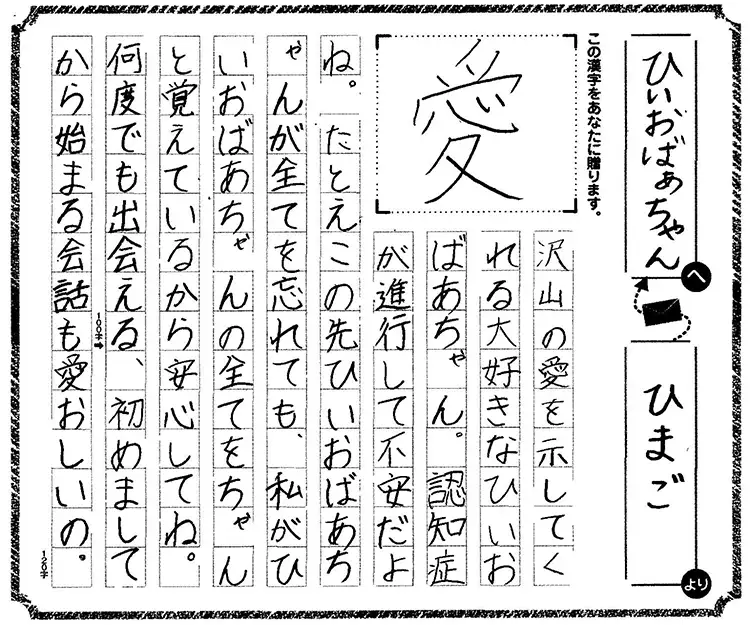 ひいおばぁちゃん
へ
ひまご
より
この漢字をあなたに贈ります。
愛
沢山の愛を示してく
れる大好きなひいお
ばあちゃん。認知症
が進行して不安だよ
ね。たとえこの先ひいおばあち
ゃんが全てを忘れても、私がひ
いおばあちゃんの全てをちゃん
と覚えているから安心してね。
何度でも出会える、初めまして
100字
から始まる会話も愛おしいの。
120字